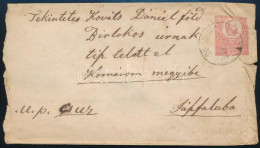 Tekintetes Kováts Dániel föld
Birtokos urnak
tip telett el
Komárom megyibe
u. p.
Tápfaluba